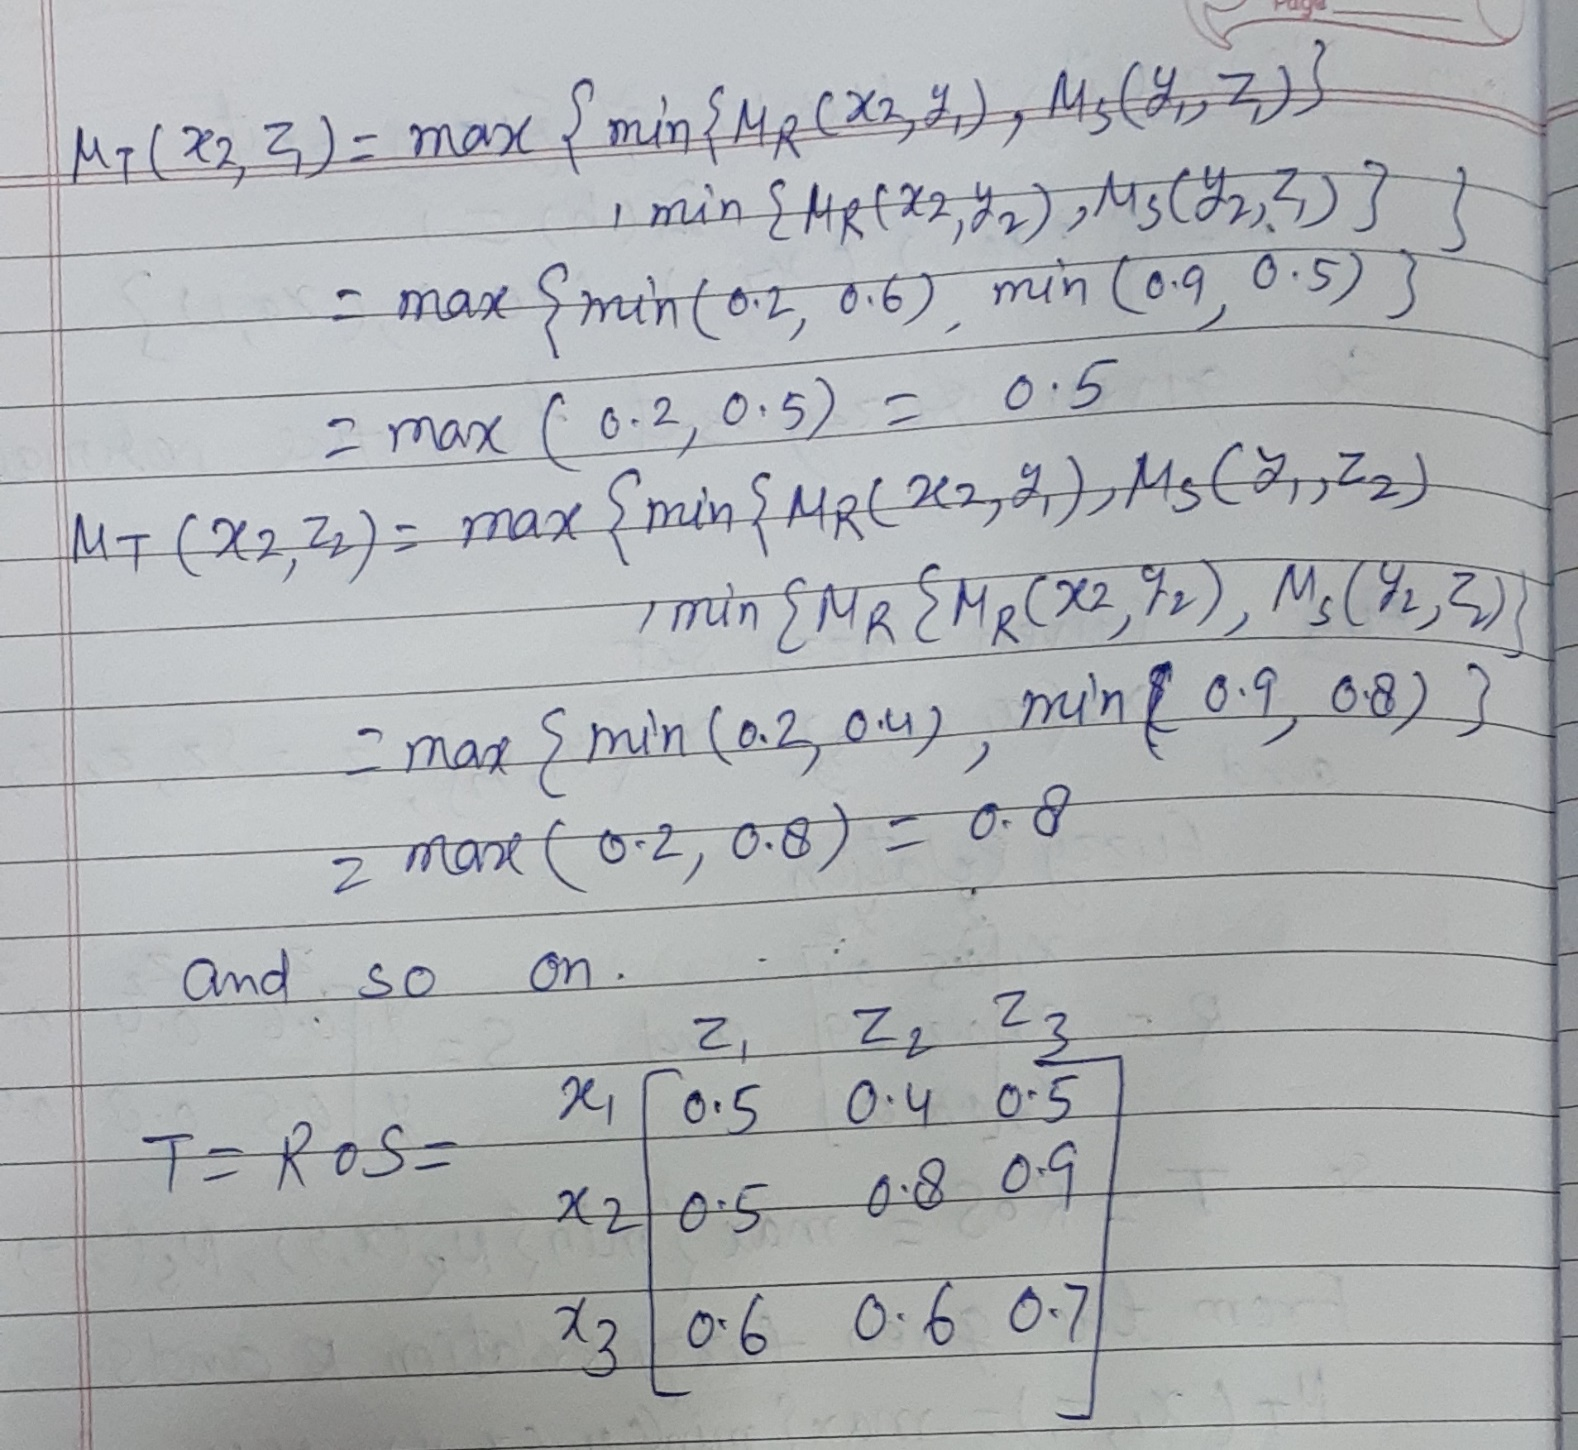 Page
μT(x2, z1) = max { min{μR(x2, y1), μS(y1, z1)}
, min {μR(x2, y2), μS(y2, z1)} }
= max {min(0.2, 0.6), min (0.9, 0.5) }
= max ( 0.2, 0.5) = 0.5
μT (x2, z2) = max {min{ μR(x2, y1), μS(y1, z2)
, min {μR {μR(x2, y2), μS(y2, z2)}
= max {min (0.2, 0.4), min( 0.9, 0.8) }
= max ( 0.2, 0.8) = 0.8
and so on.
z1 z2 z3
x1 [ 0.5 0.4 0.5 ]
T = R o S =
x2 0.5 0.8 0.9
x3 0.6 0.6 0.7